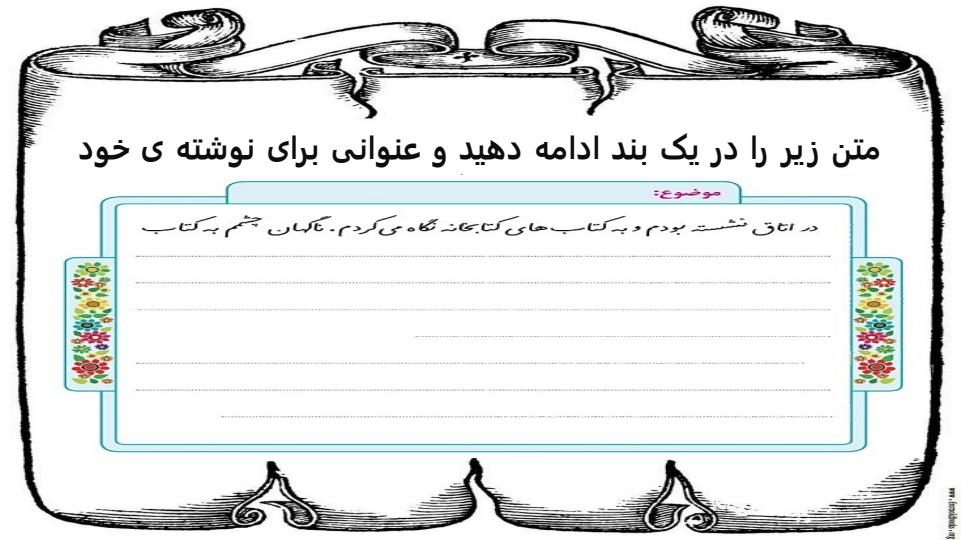 متن زیر را در یک بند ادامه دهید و عنوانی برای نوشته ی خود
موضوع:
در اتاق نشسته بودم و به کتاب‌های کتابخانه نگاه می‌کردم. ناگهان چشمم به کتاب